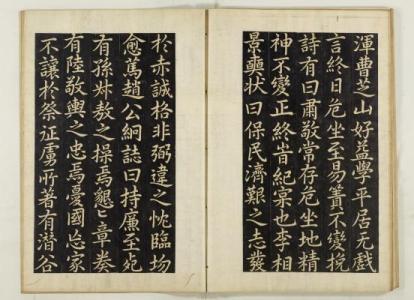 渾曹芝山好益學平居无戲
言終日危坐至易簀不變挽
詩有曰肅敬常存危坐地精
神不變正終旹紀宗也李相
景奭状曰保民濟艱之志發
於赤誠格非弼違之忱臨歾
愈篤趙公絅誌曰持廉至死
有孫叔敖之操焉懇〻章奏
有陸敬輿之忠焉憂國忘家
不讓於祭征虜所著有潛谷